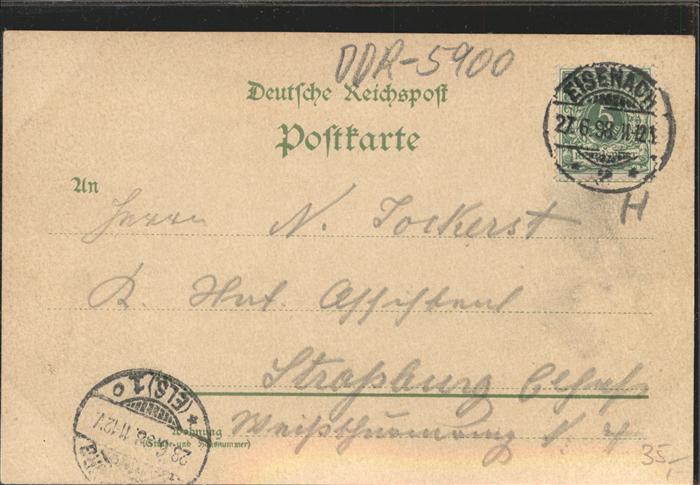 DDR-5900
Deutsche Reichspost
Postkarte
EISENACH
27.6.98.11-12V.
* 2 *
5
H
An
Herrn N. Jockerst
K. Hut. Assistent
Straßburg Elsass
Wohnung
(Straße und Hausnummer)
Weißthurmring N. 4
(ELS) 1
28.6.98.11-12V.
35,-